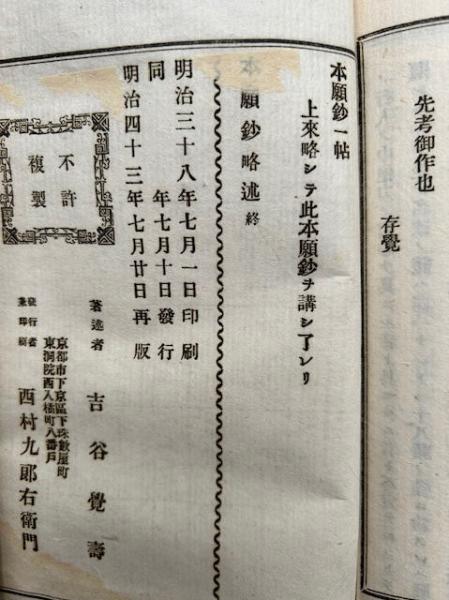 先考御作也
存覺
本願鈔一帖
上來略シテ此本願鈔ヲ講シ了レリ
本願鈔略述終
明治三十八年七月一日印刷
同 年七月十日發行
明治四十三年七月廿日再版
不許
複製
著述者 吉谷覺壽
京都市下京區下珠數屋町
東洞院西入橘町八番戸
發行者
兼印刷 西村九郎右衞門